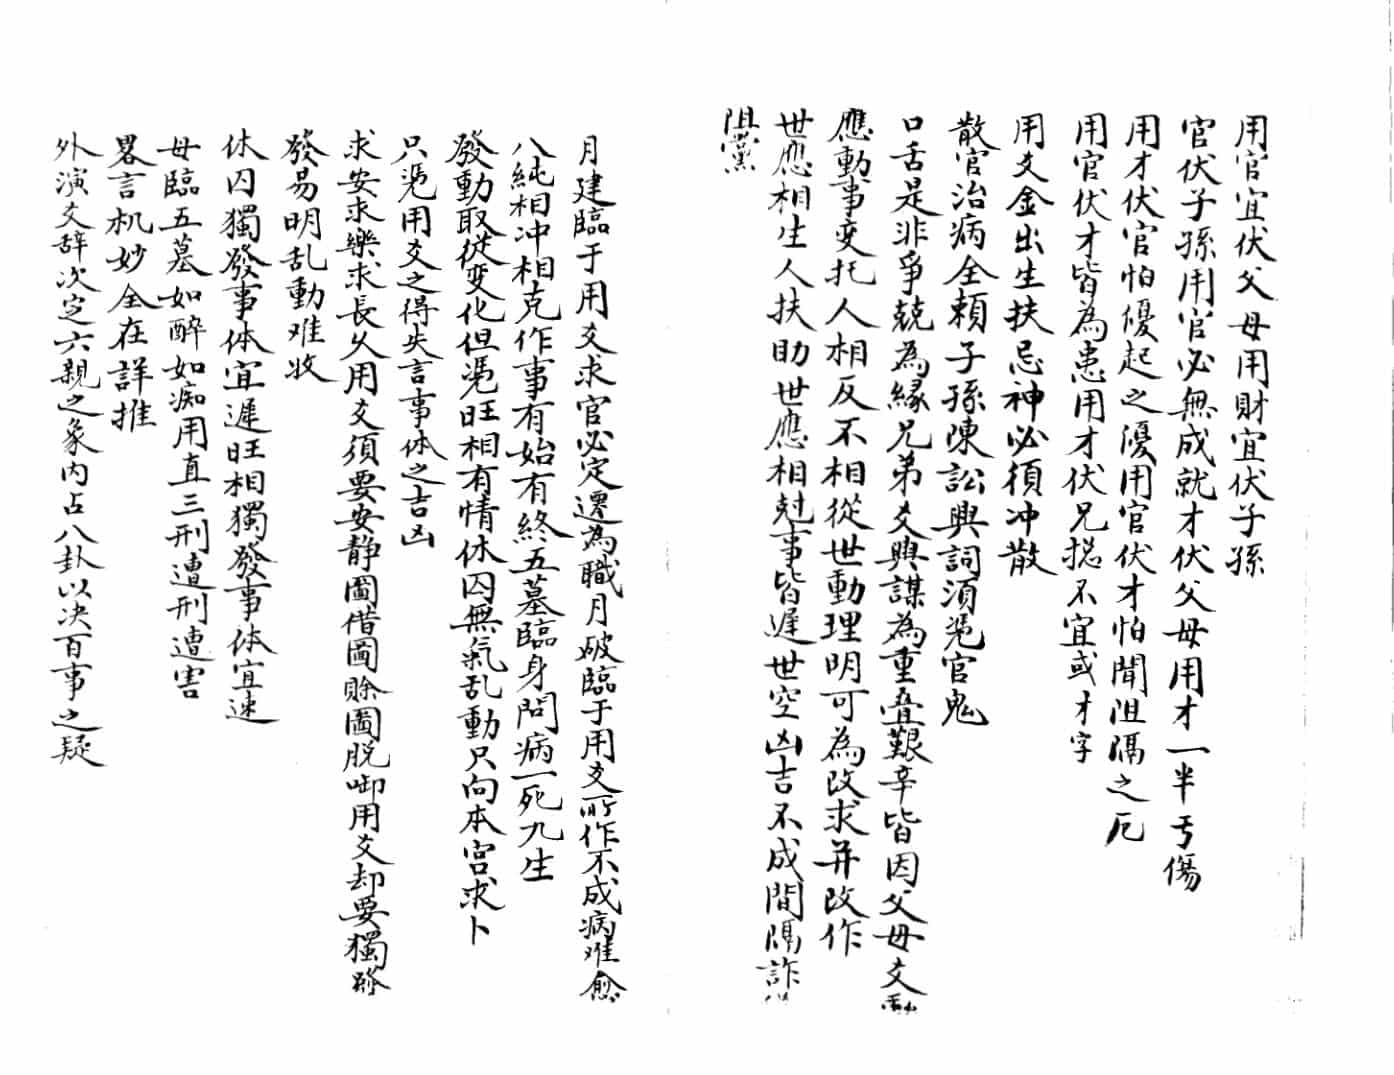 用官宜伏父母用財宜伏子孫
官伏子孫用官必無成就才伏父母用才一半亐傷
用才伏官怕優起之優用官伏才怕聞阻隔之厄
用官伏才皆為患用才伏兄捴不宜或才字
用爻金出生扶忌神必須冲散
散官治病全頼子孫陳訟興詞須凴官鬼
口舌是非爭兢為縁兄弟爻興謀為重叠艱辛皆因父母爻動
應動事变托人相反不相從世動理明可為改求并改作
世應相生人扶助世應相尅事皆遲世空凶吉不成間隔詐
阻黨
月建臨于用爻求官必定遷為職月破臨于用爻所作不成病难愈
八純相冲相克作事有始有終五墓臨身問病一死九生
發動取從变化但凴旺相有情休囚無氣乱動只向本宫求卜
只凴用爻之得失言事体之吉凶
求安求樂求長久用爻須要安静圖借圖賒圖脱啣用爻却要獨發
發易明乱動难收
休囚獨發事体宜遲旺相獨發事体宜速
母臨五墓如醉如痴用直三刑遭刑遭害
畧言机妙全在詳推
外演爻辞次定六親之象内占八卦以决百事之疑